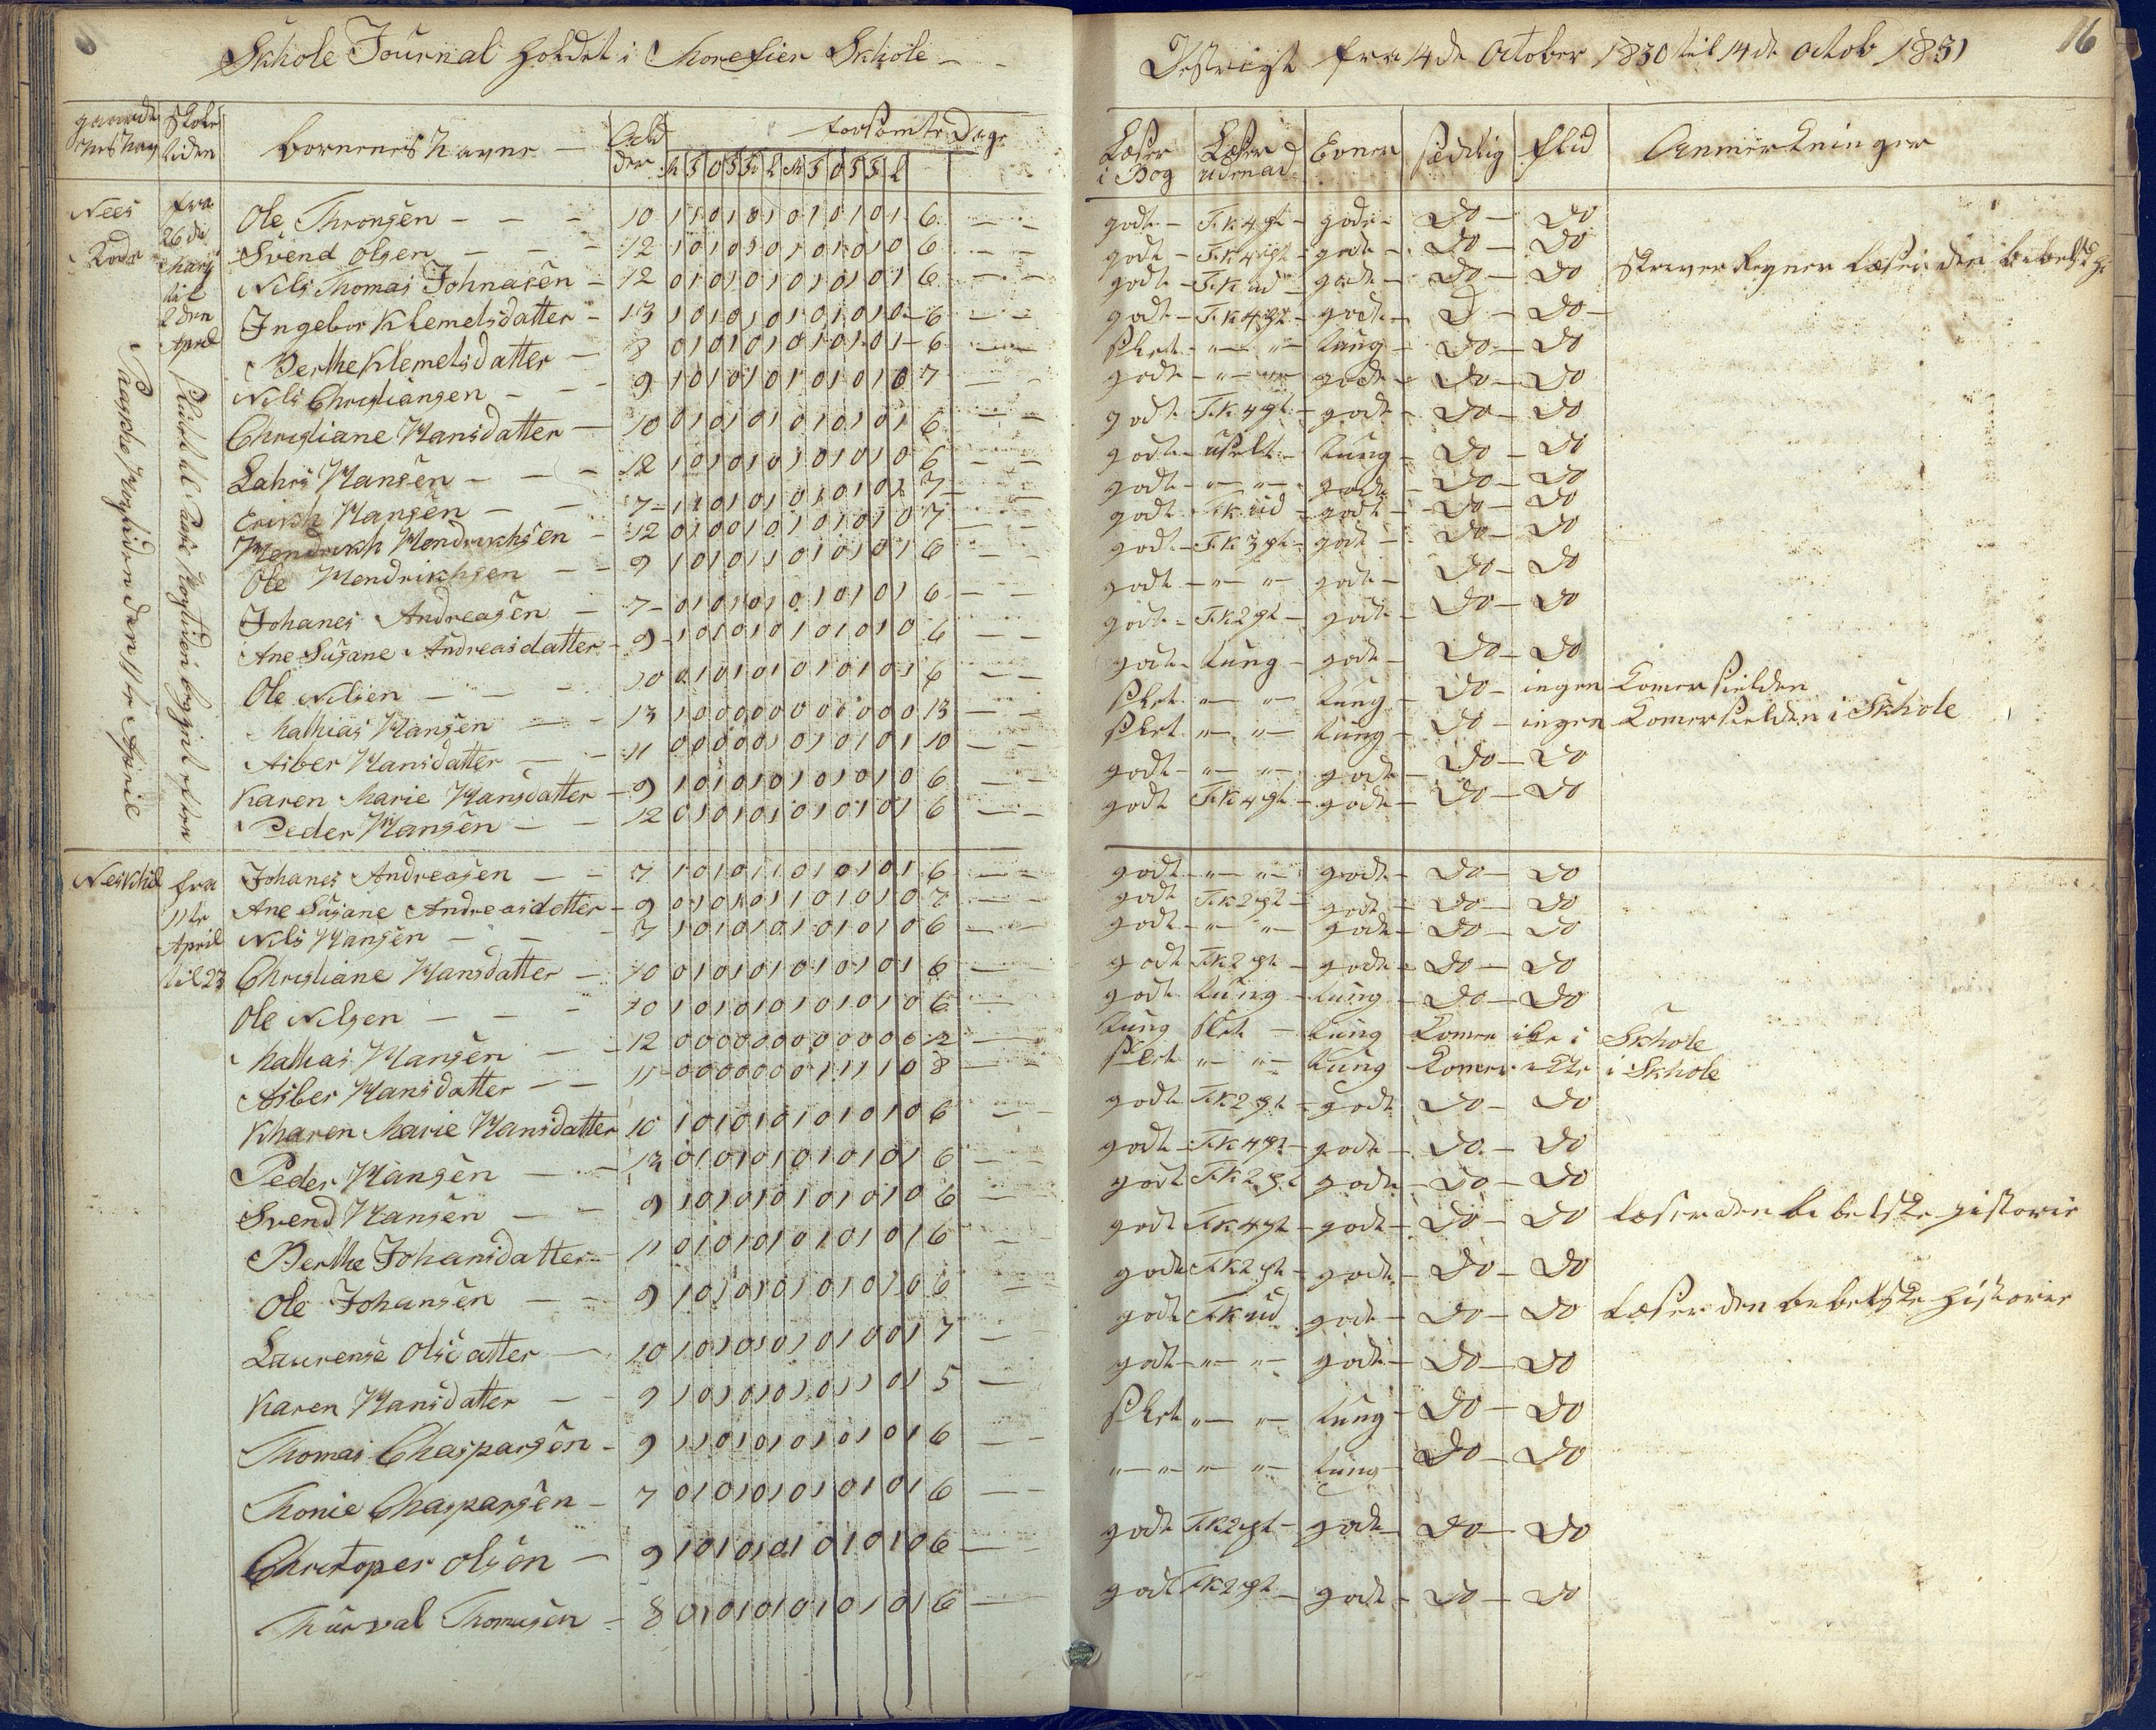 Skhole Journal holdet i Thorefier Skhole
Destrigt fra 14de October 1830 til 14de octob 1831
16
gaardenes Navn
Skole tiden
børnenes Navne
Alder
forsømte Dage
M T O T F L M T O T F L
Læser i Bog
Læser udenad
Evner
sædelig
flid
Anmerkninger
Nees
fra 26de Marti til 2den April
Ole Thronsen 10 1 1 0 1 0 1 0 1 0 1 0 1 6 godt T.K 4 pt godt Do Do
Svend Olsen 12 1 0 1 0 1 0 1 0 1 0 1 0 6 godt T.K 4 pt godt Do Do
Nils Thomas Johnasen 12 0 1 0 1 0 1 0 1 0 1 0 1 6 godt T.K ud godt Do Do Skriver Regner Læser i den bibelske Hi
Ingebor Klemelsdatter 13 1 0 1 0 1 0 1 0 1 0 1 0 6 godt T.K 4 pt godt D Do
Berthe Klemelsdatter 8 0 1 0 1 0 1 0 1 0 1 0 1 6 Slet " " tung Do Do
Nils Christiansen 9 1 0 1 0 1 0 1 0 1 0 1 0 7 godt " " godt Do Do
Christiane Hansdatter 10 0 1 0 1 0 1 0 1 0 1 0 1 6 godt T.K 4 pt godt Do Do
Lahrs Hansen 12 1 0 1 0 1 0 1 0 1 0 1 0 6 godt uselt tung Do Do
Erikh Hansen 7 1 1 0 1 0 1 0 1 0 1 0 1 7 godt " " godt Do Do
Hendrikh Hendrikhsen 12 0 1 0 0 1 0 1 0 1 0 1 0 7 godt T.K ud godt Do Do
Ole Hendrikhsen 9 1 0 1 0 1 1 0 1 0 1 0 1 6 godt T.K 3 pt godt Do Do
Johanes Andreasen 7 0 1 0 1 0 1 0 1 0 1 0 1 6 godt " " godt Do Do
Ane Susane Andreasdatter 9 1 0 1 0 1 0 1 0 1 0 1 0 6 godt T.K 2 pt godt Do Do
Ole Nilsen 10 0 1 0 1 0 1 0 1 0 1 0 1 6 godt tung godt Do Do
Mathias Hansen 13 1 0 0 0 0 0 0 0 0 0 0 0 13 Slet " " tung Do ingen Komer sielden
Asber Hansdatter 11 0 0 0 0 0 1 0 1 0 1 0 1 10 Slet " " tung Do ingen Komer sielden i Skhole
Karen Marie Hansdatter 9 1 0 1 0 1 0 1 0 1 0 1 0 6 godt " " godt Do Do
Peder Hansen 12 0 1 0 1 0 1 0 1 0 1 0 1 6 godt T.K 4 pt godt Do Do
Paaske Høgtiden den 11te Aprile
Neskhil
fra 11te April til 23
Johanes Andreasen 7 1 0 1 0 1 1 0 1 0 1 0 1 6 godt " " godt Do Do
Ane Susane Andreasdetter 9 0 1 0 1 0 1 1 0 1 0 1 0 7 godt T.K 2 pt godt Do Do
Nils Hansen 7 1 0 1 0 1 0 1 0 1 0 1 0 6 godt " " godt Do Do
Christiane Hansdatter 10 0 1 0 1 0 1 0 1 0 1 0 1 6 godt T.K 2 pt godt Do Do
Ole Nilsen 10 1 0 1 0 1 0 1 0 1 0 1 0 6 godt tung tung Do Do
Mathias Hansen 12 0 0 0 0 0 0 0 0 0 0 0 0 12 tung slet tung Komer ikke i Skhole
Asber Hansdatter 11 0 0 0 0 0 0 0 1 1 1 1 0 8 Slet " " tung Komer ikke i Skhole
Kharen Marie Hansdatter 10 1 0 1 0 1 0 1 0 1 0 1 0 6 godt T.K 2 pt godt Do Do
Peder Hansen 12 0 1 0 1 0 1 0 1 0 1 0 1 6 godt T.K 4 pt godt Do Do
Svend Hansen 9 1 0 1 0 1 0 1 0 1 0 1 0 6 godt T.K 2 pt godt Do Do
Berthe Johansdatter 11 0 1 0 1 0 1 0 1 0 1 0 1 6 godt T.K 4 pt godt Do Do Læser den bibelske Historie
Ole Johansen 9 1 0 1 0 1 0 1 0 1 0 1 0 6 godt T.K 2 pt godt Do Do
Laurense Olsdatter 10 1 0 1 0 1 0 1 0 1 0 0 1 7 godt T.K ud godt Do Do Læser den bebelske Historie
Karen Hansdatter 9 1 0 1 0 1 0 1 0 1 1 0 1 5 godt " " godt Do Do
Thomas Chasparsen 9 1 1 0 1 0 1 0 1 0 1 0 1 6 Slet " " tung Do Do
Thonie Chasparsen 7 0 1 0 1 0 1 0 1 0 1 0 1 6 " " " " tung Do Do
Christoper Olsen 9 1 0 1 0 1 0 1 0 1 0 1 0 6 godt T.K 2 pt godt Do Do
Thurval Thomasen 8 0 1 0 1 0 1 0 1 0 1 0 1 6 godt T.K 2 pt godt Do Do